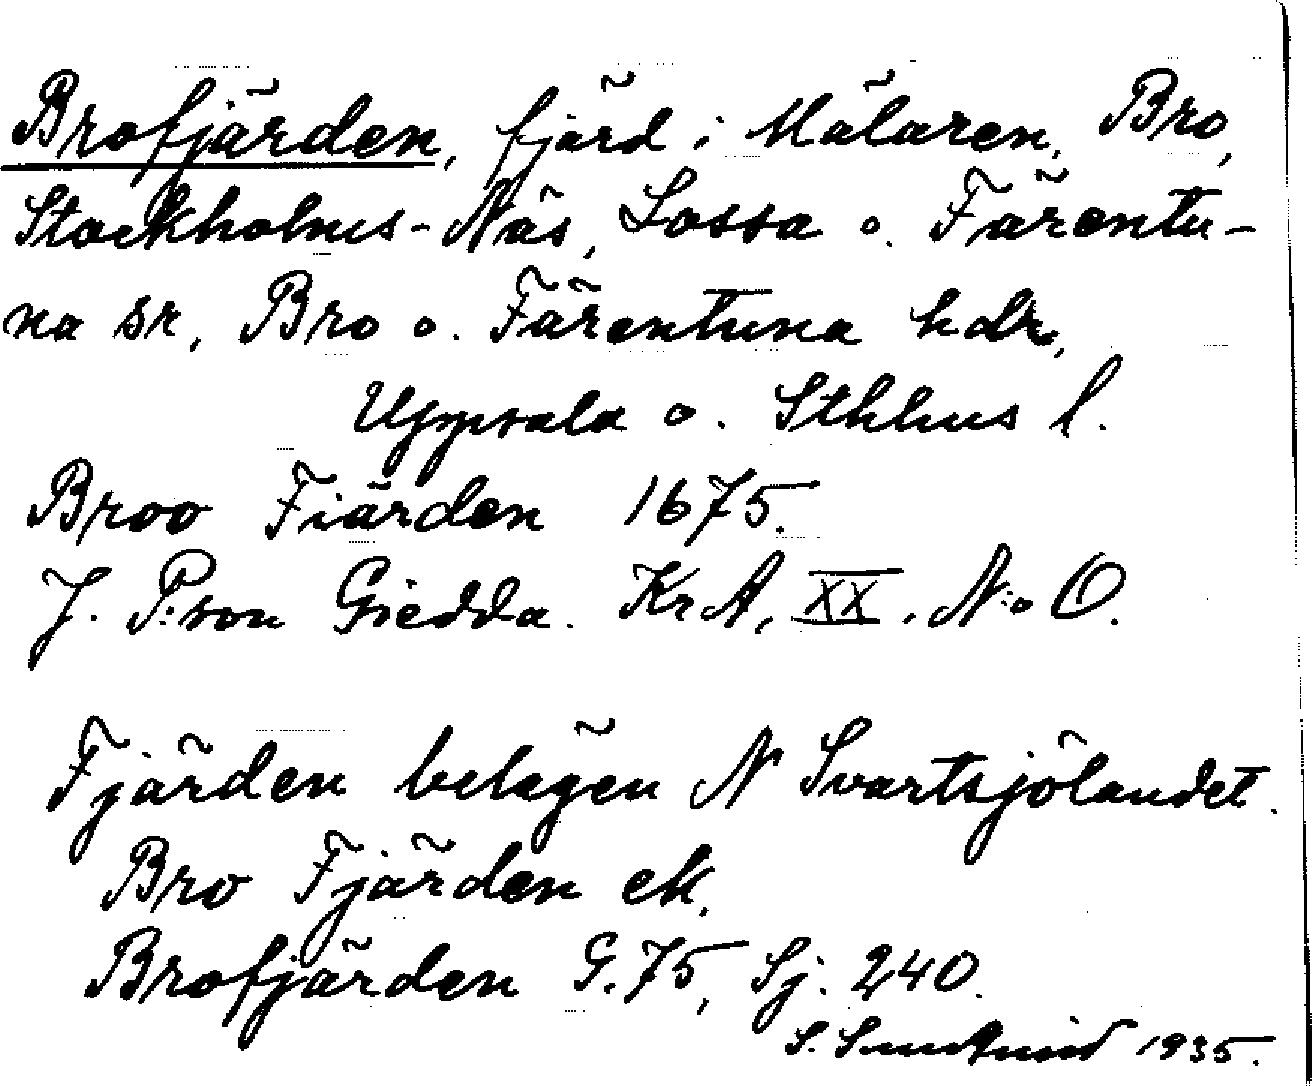 Brofjärden, fjärd i Mälaren, Bro,
Stockholms-Näs, Lossa o. Färentu-
na sr, Bro o. Färentuna hdr,
Uppsala o. Sthlms l.
Broo Fiärden 1675.
J. P:son Giedda. KrA, XX, N:o O.
Fjärden belägen N Svartsjölandet.
Bro Fjärden ek.
Brofjärden G. 75, Sj. 240.
S. 1935.